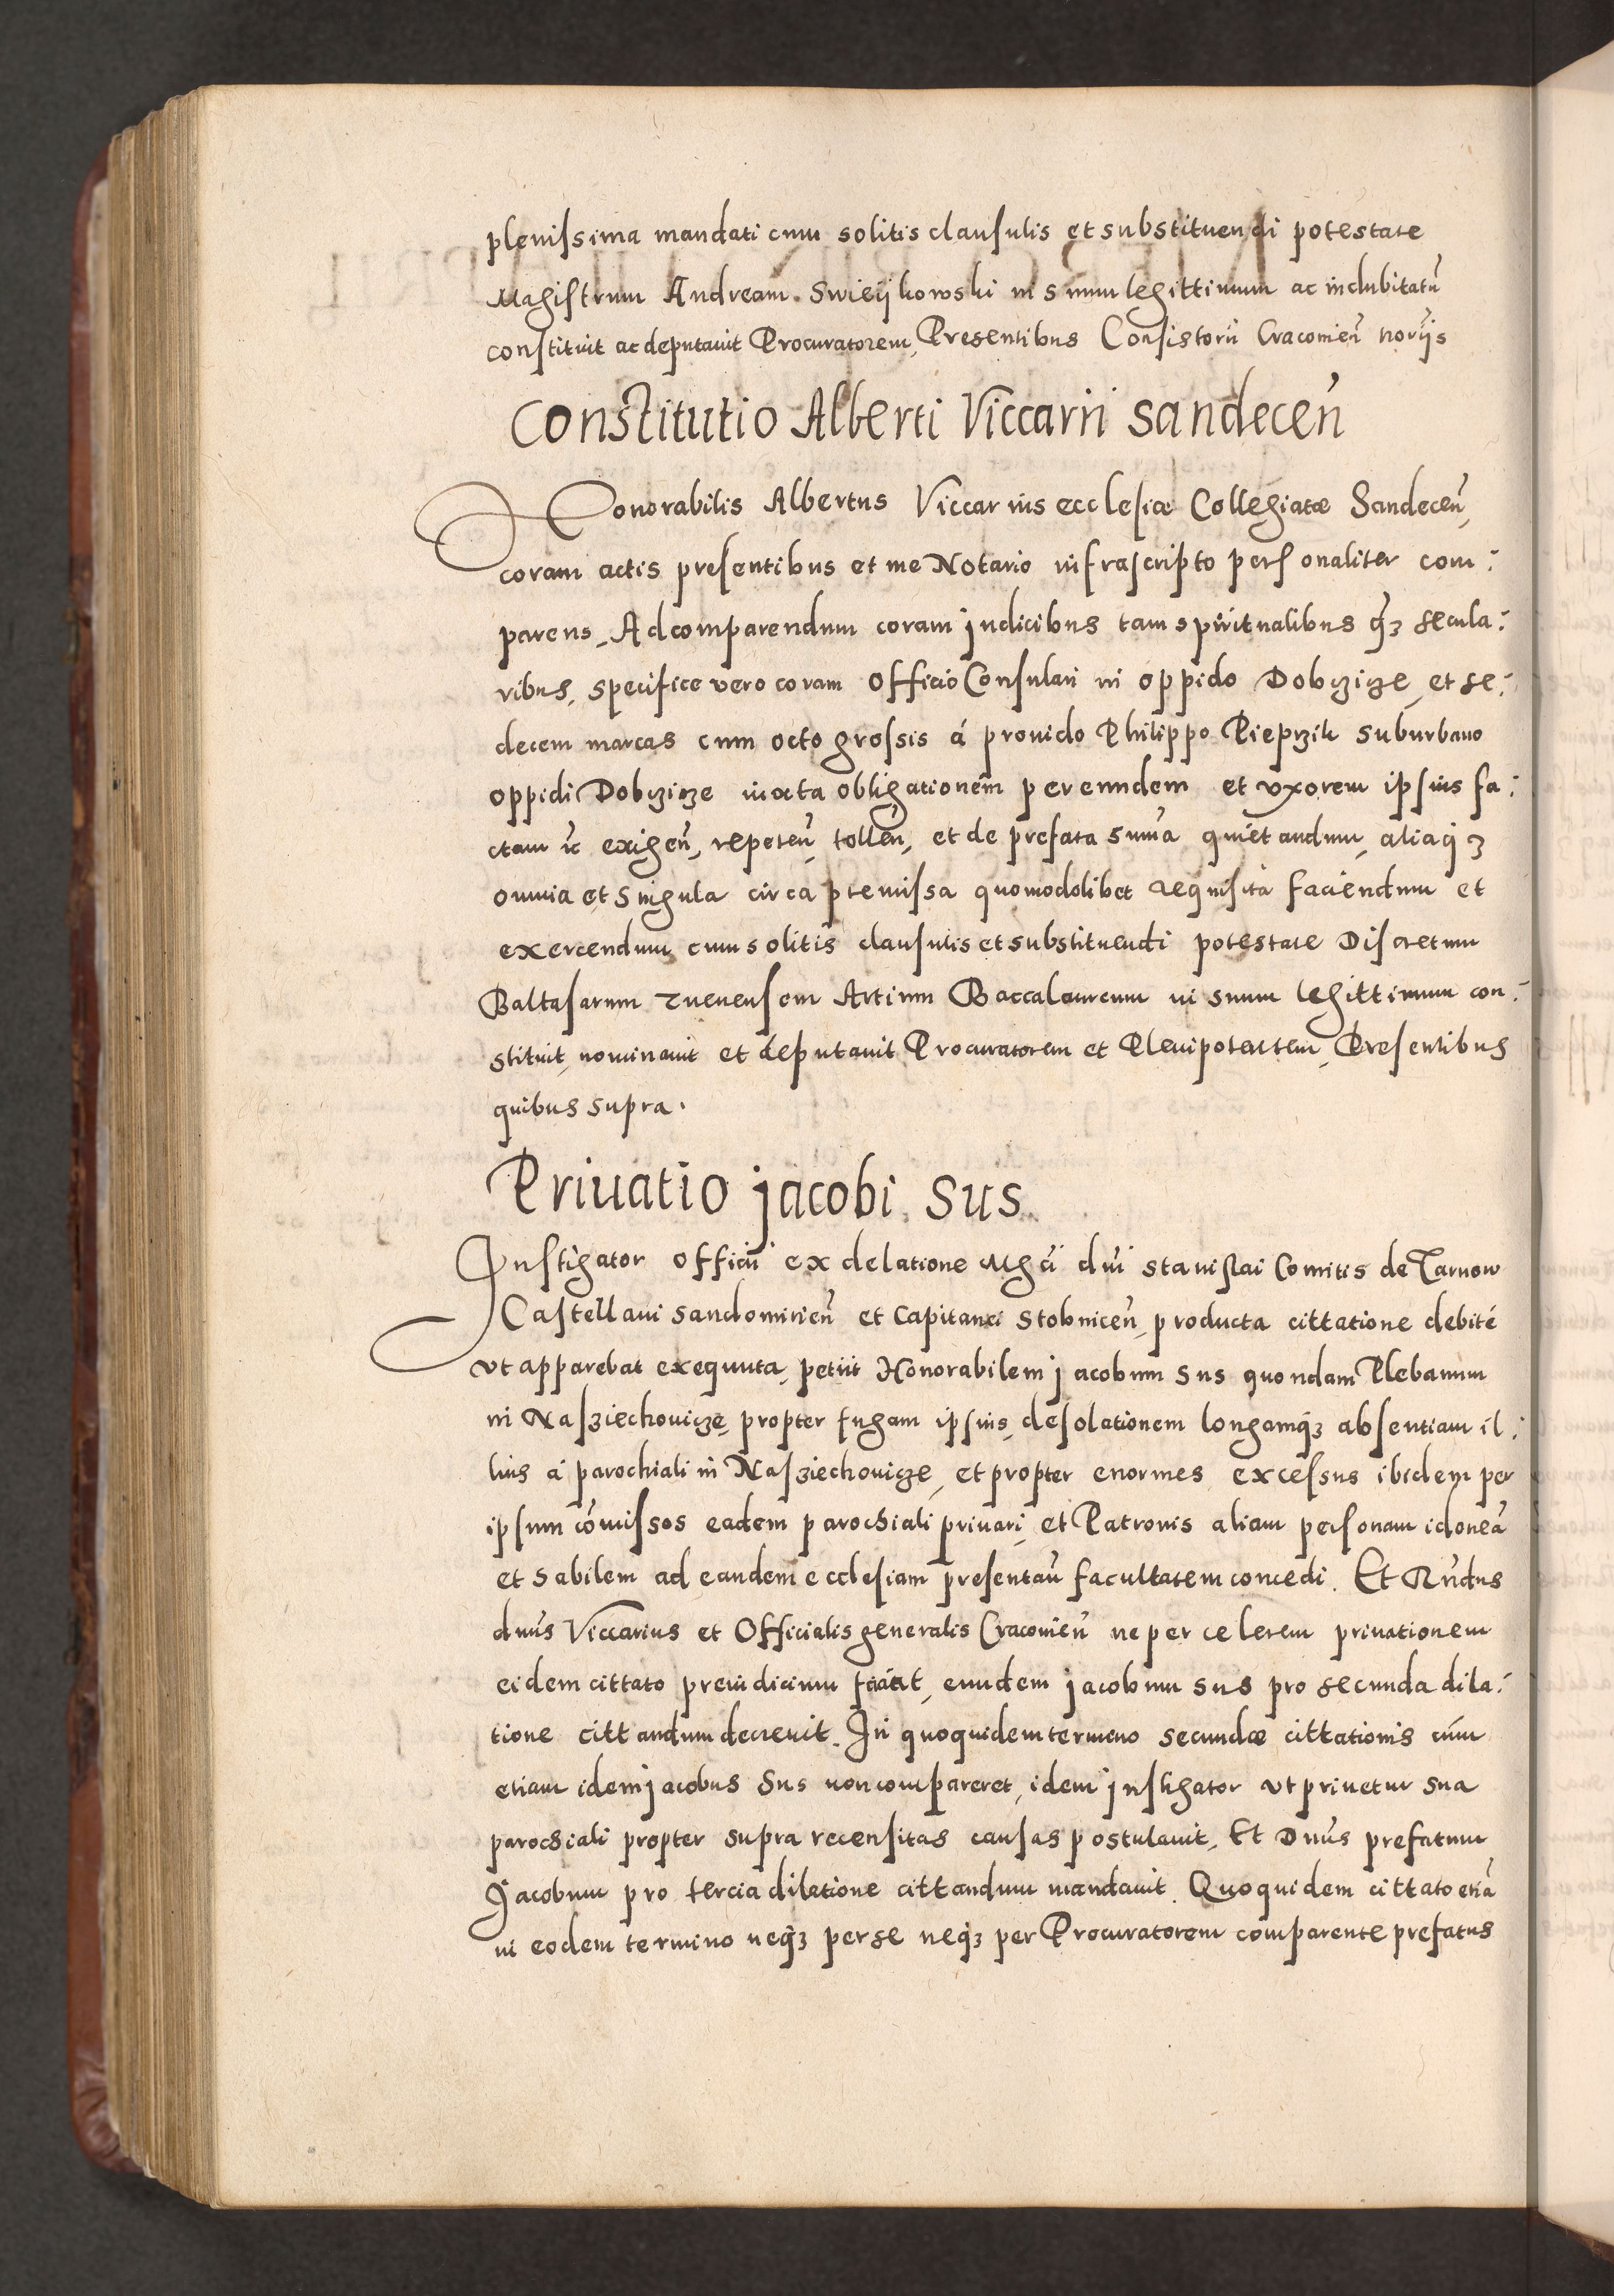 plenissima mandati cum solitis clausulis et substituendi potestate
Magistrum Andream Swieijkowski in suum legittimum ac indubitatū
constituit ac deputauit Procuratorem, Presentibus Consistorii Cracovieñ noriis
Constitutio Alberti Viccarii Sandeceñ
Honorabilis Albertus Viccarius ecclesiæ Collegiatæ Sandeceñ,
coram actis presentibus et me Notario infrascripto personaliter com:
parens, Ad comparendum coram judicibus tam spiritualibus q̄ꝫ secula:
ribus, specifice vero coram Officio Consulari in oppido Dobczicze, et se:
decem marcas cum octo grossis á prouido Philippo Pieprzik suburbano
oppidi Dobczicze iuxta obligationem per eundem et vxorem ipsius fa:
ctam exigeñ, repeteñ, tolleñ, et de prefata suma quietandum, aliaqꝫ
omnia et singula circa premissa quomodolibet requisita faciendum et
exercendum, cum solitis clausulis et substituendi potestate Discretum
Baltasarum Zneuensem Artium Baccalaureum in suum legittimum con:
stituit, nominauit et deputauit Procuratorem et Plenipotentem, Presentibus
quibus supra.
Priuatio jacobi Sus
Instigator officii ex delatione Mgci dni Stanislai Comitis de Tarnow
Castellani Sandomirieñ et Capitanei Stobniceñ, producta cittatione debité
vt apparebat exequuta, petiit Honorabilem jacobum Sus quondam Plebanum
in Nasziechouicze, propter fugam ipsius, desolationem longamqꝫ absentiam il:
lius á parochiali in Nasziechouicze, et propter enormes excessus ibidem per
ipsum cōmissos eadem parochiali priuari, et Patronis aliam personam idoneā
et habilem ad eandem ecclesiam presentañ facultatem concedi. Et Rñdus
dnūs Viccarius et Officialis generalis Cracovieñ ne per celerem priuationem
eidem cittato preiudicium fiat, eundem jacobum Sus pro secunda dila:
tione cittandum decreuit. In quoquidem termino secundæ cittationis cúm
etiam idem jacobus Sus non compareret, idem jnstigator vt priuetur sua
parochiali propter supra recensitas causas postulauit, Et Dnūs prefatum
Jacobum pro tercia dilatione cittandum mandauit. Quoquidem cittato etiā
in eodem termino neqꝫ per se neqꝫ per Procuratorem comparente prefatus